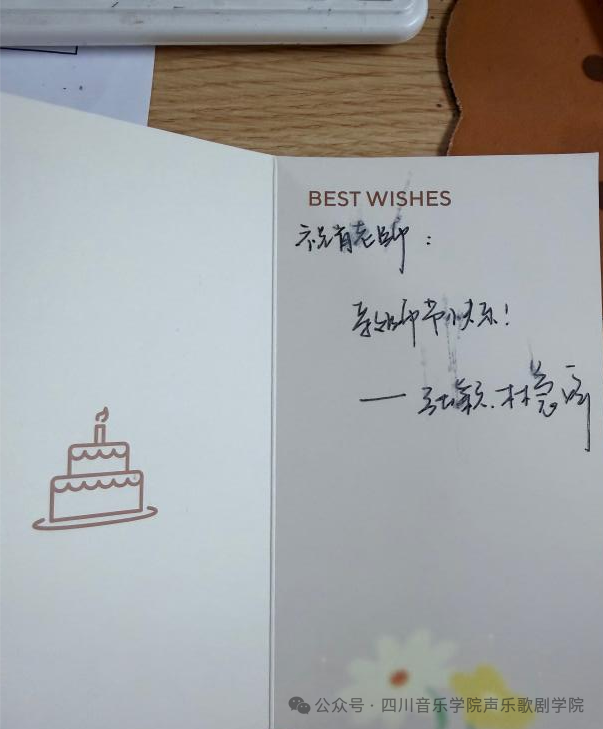 BEST WISHES
祝肖老师：
教师节快乐！
——张颖、林
公众号·四川音乐学院声乐歌剧学院